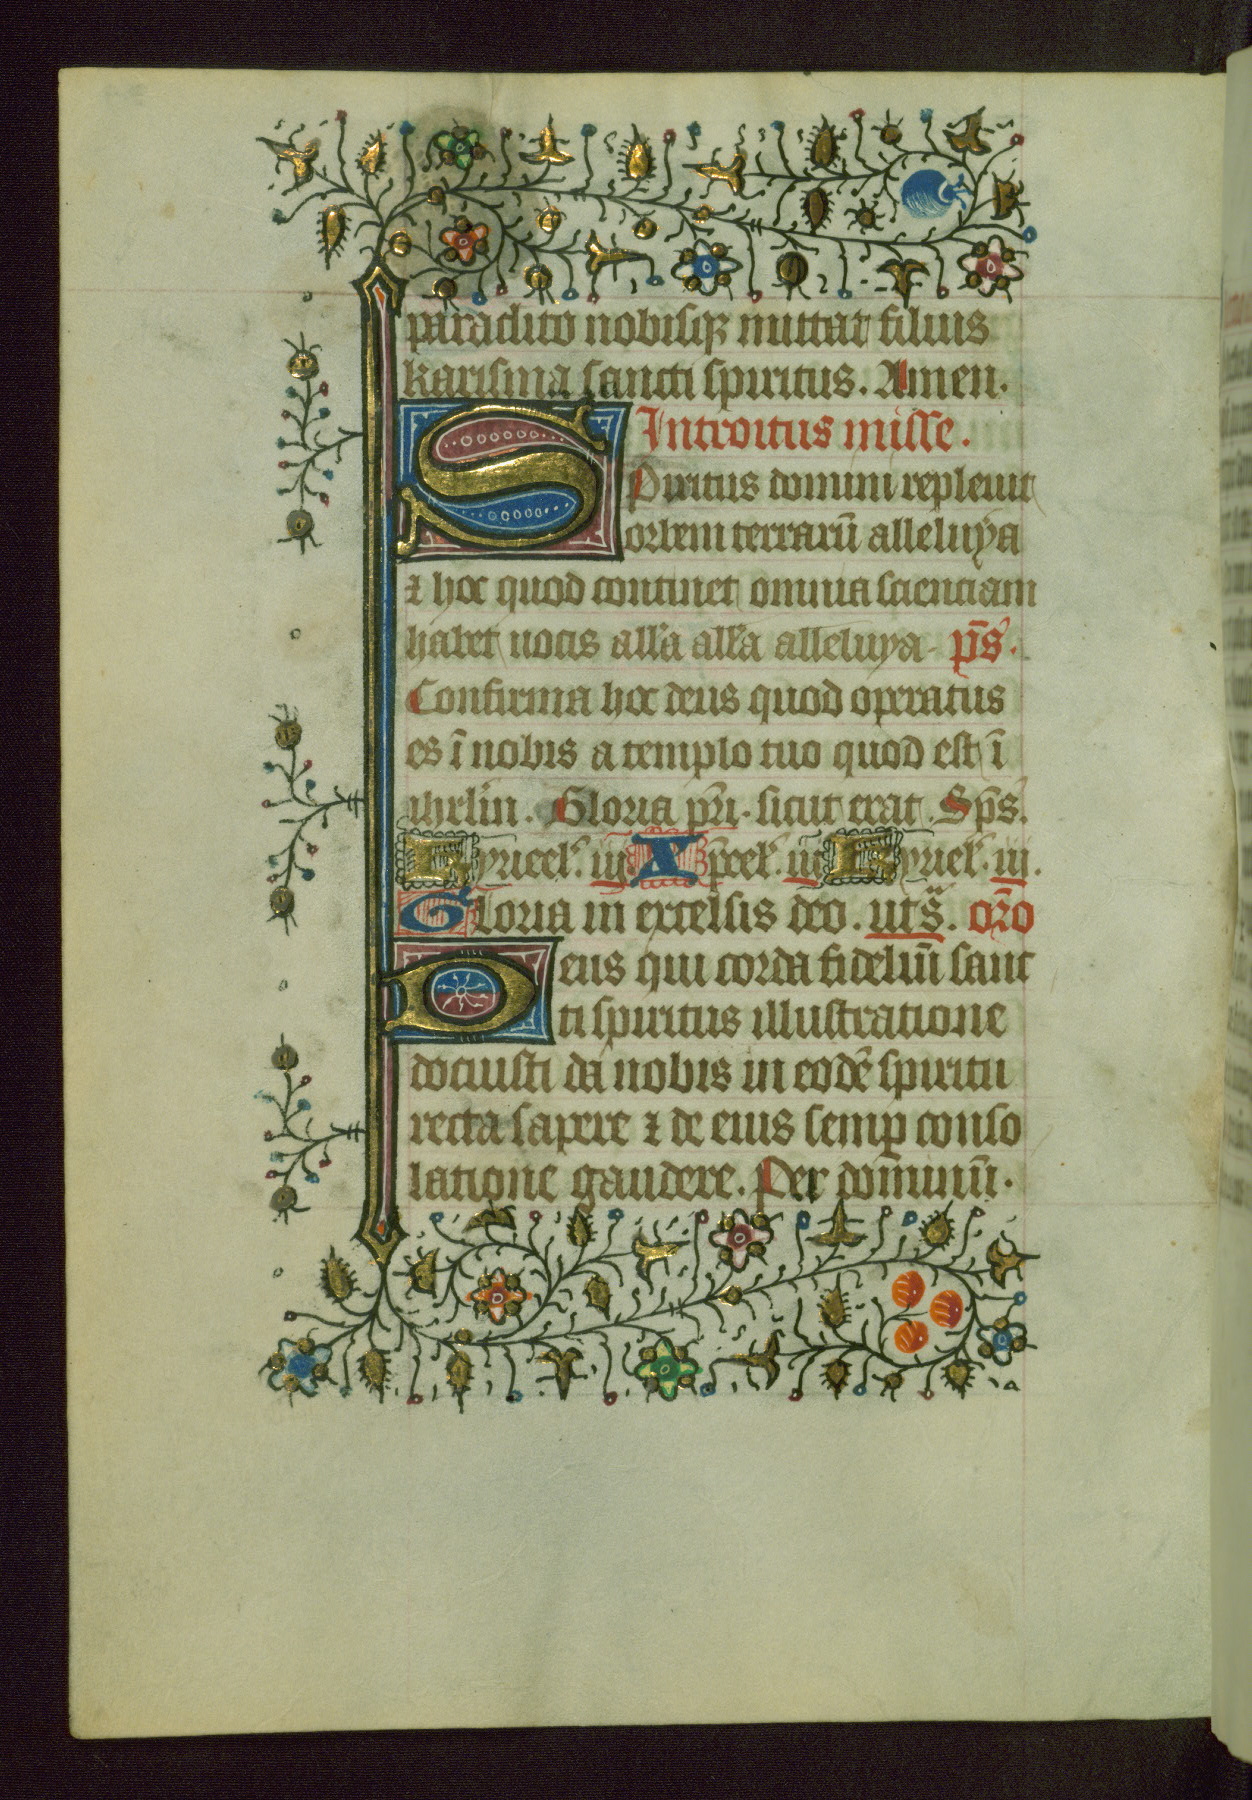 paraclito nobisqꝫ mittat filius
karisma sancti spiritus. Amen.
Introitus misse.
Spiritus domini repleuit
orbem terrarū alleluya
⁊ hoc quod continet omnia scienciam
habet uocis all'a all'a alleluya. p̄s.
Confirma hoc deus quod operatus
es ī nobis a templo tuo quod est ī
ihrl'm. Gloria pr̄i. sicut erat. Sp̄s.
Kyrieel'. iij. Xp̄eel'. iij Kyriel'. iij.
Gloria in excelsis deo. ut sᵃ. or̄o
Deus qui corda fideliū sanc
ti spiritus illustratione
docuisti da nobis in eodē spiritu
recta sapere ⁊ de eius semꝑ conso
latione gaudere. Per dominū.